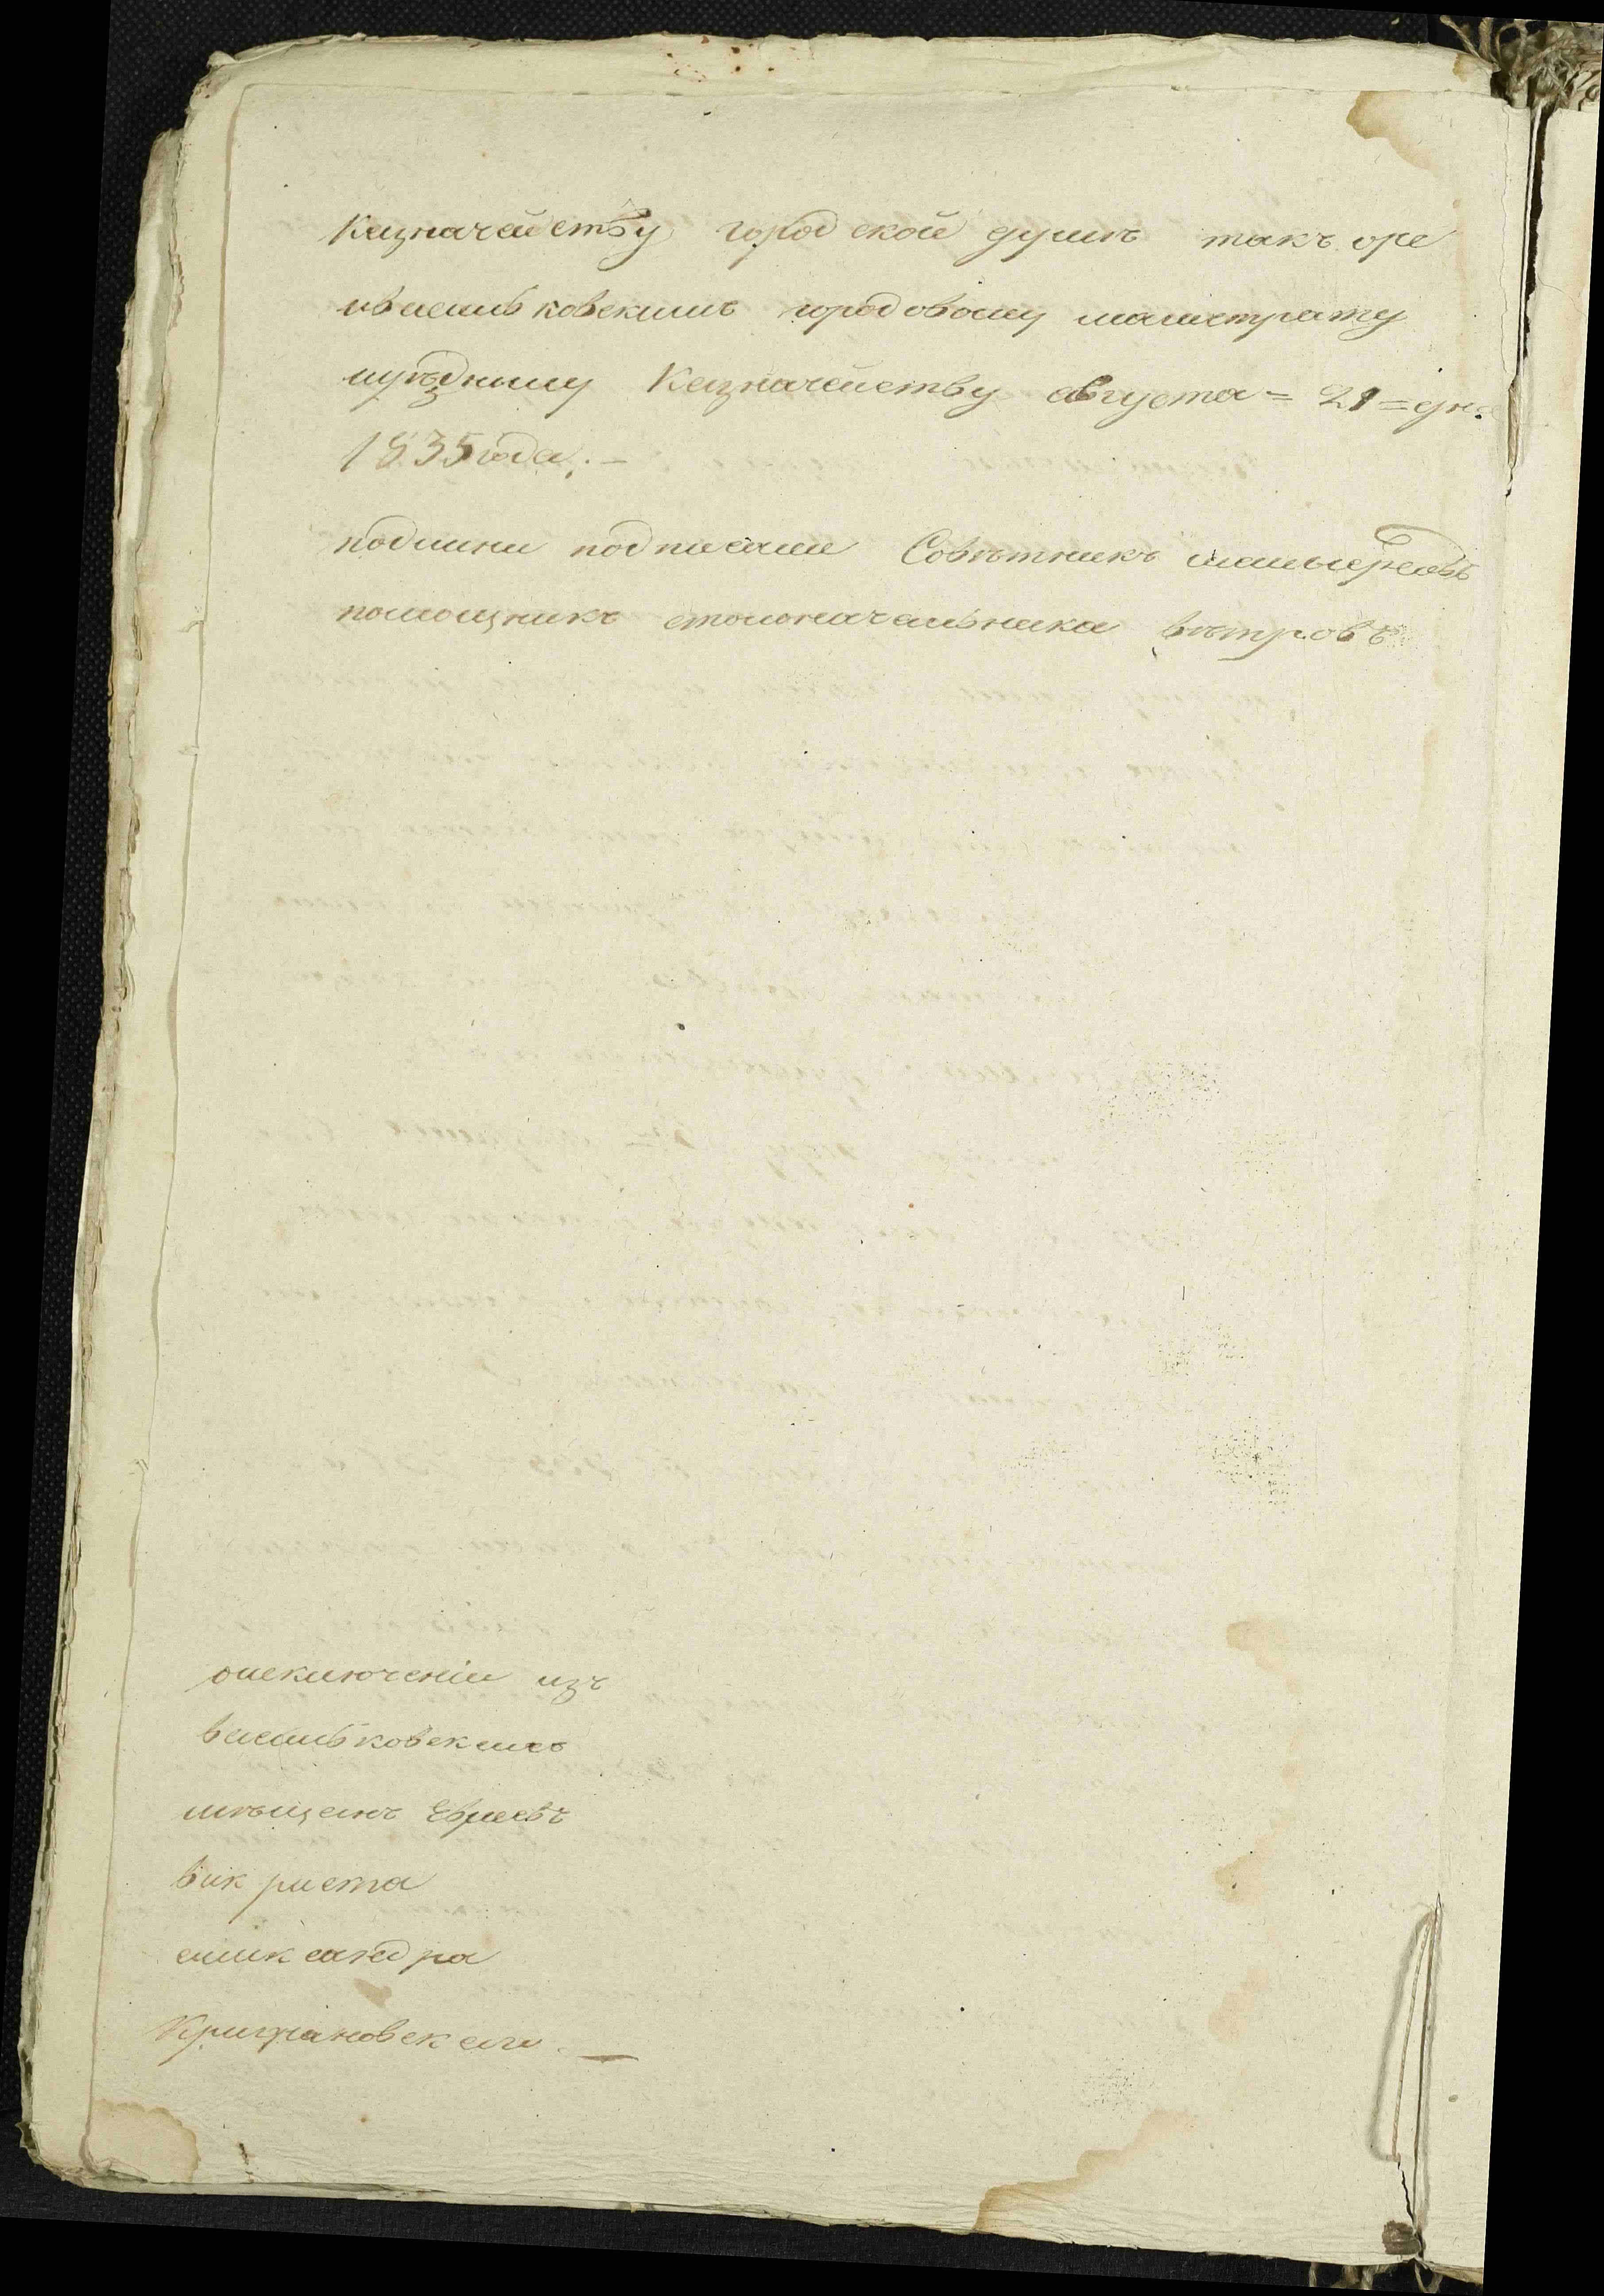 Казначейству городской думѣ такъ оре
ивасильковскимъ городовому магистрату
иуѣздному Казначейству августа = 21 = дня
1835 года. —
подлини подписали Совѣтникъ
помощникъ столоначальника вѣтровъ
оисключеніи изъ
васильковскихъ
мѣщенъ Евреевъ
вик риста
алик сандра
Крижановскаго. —